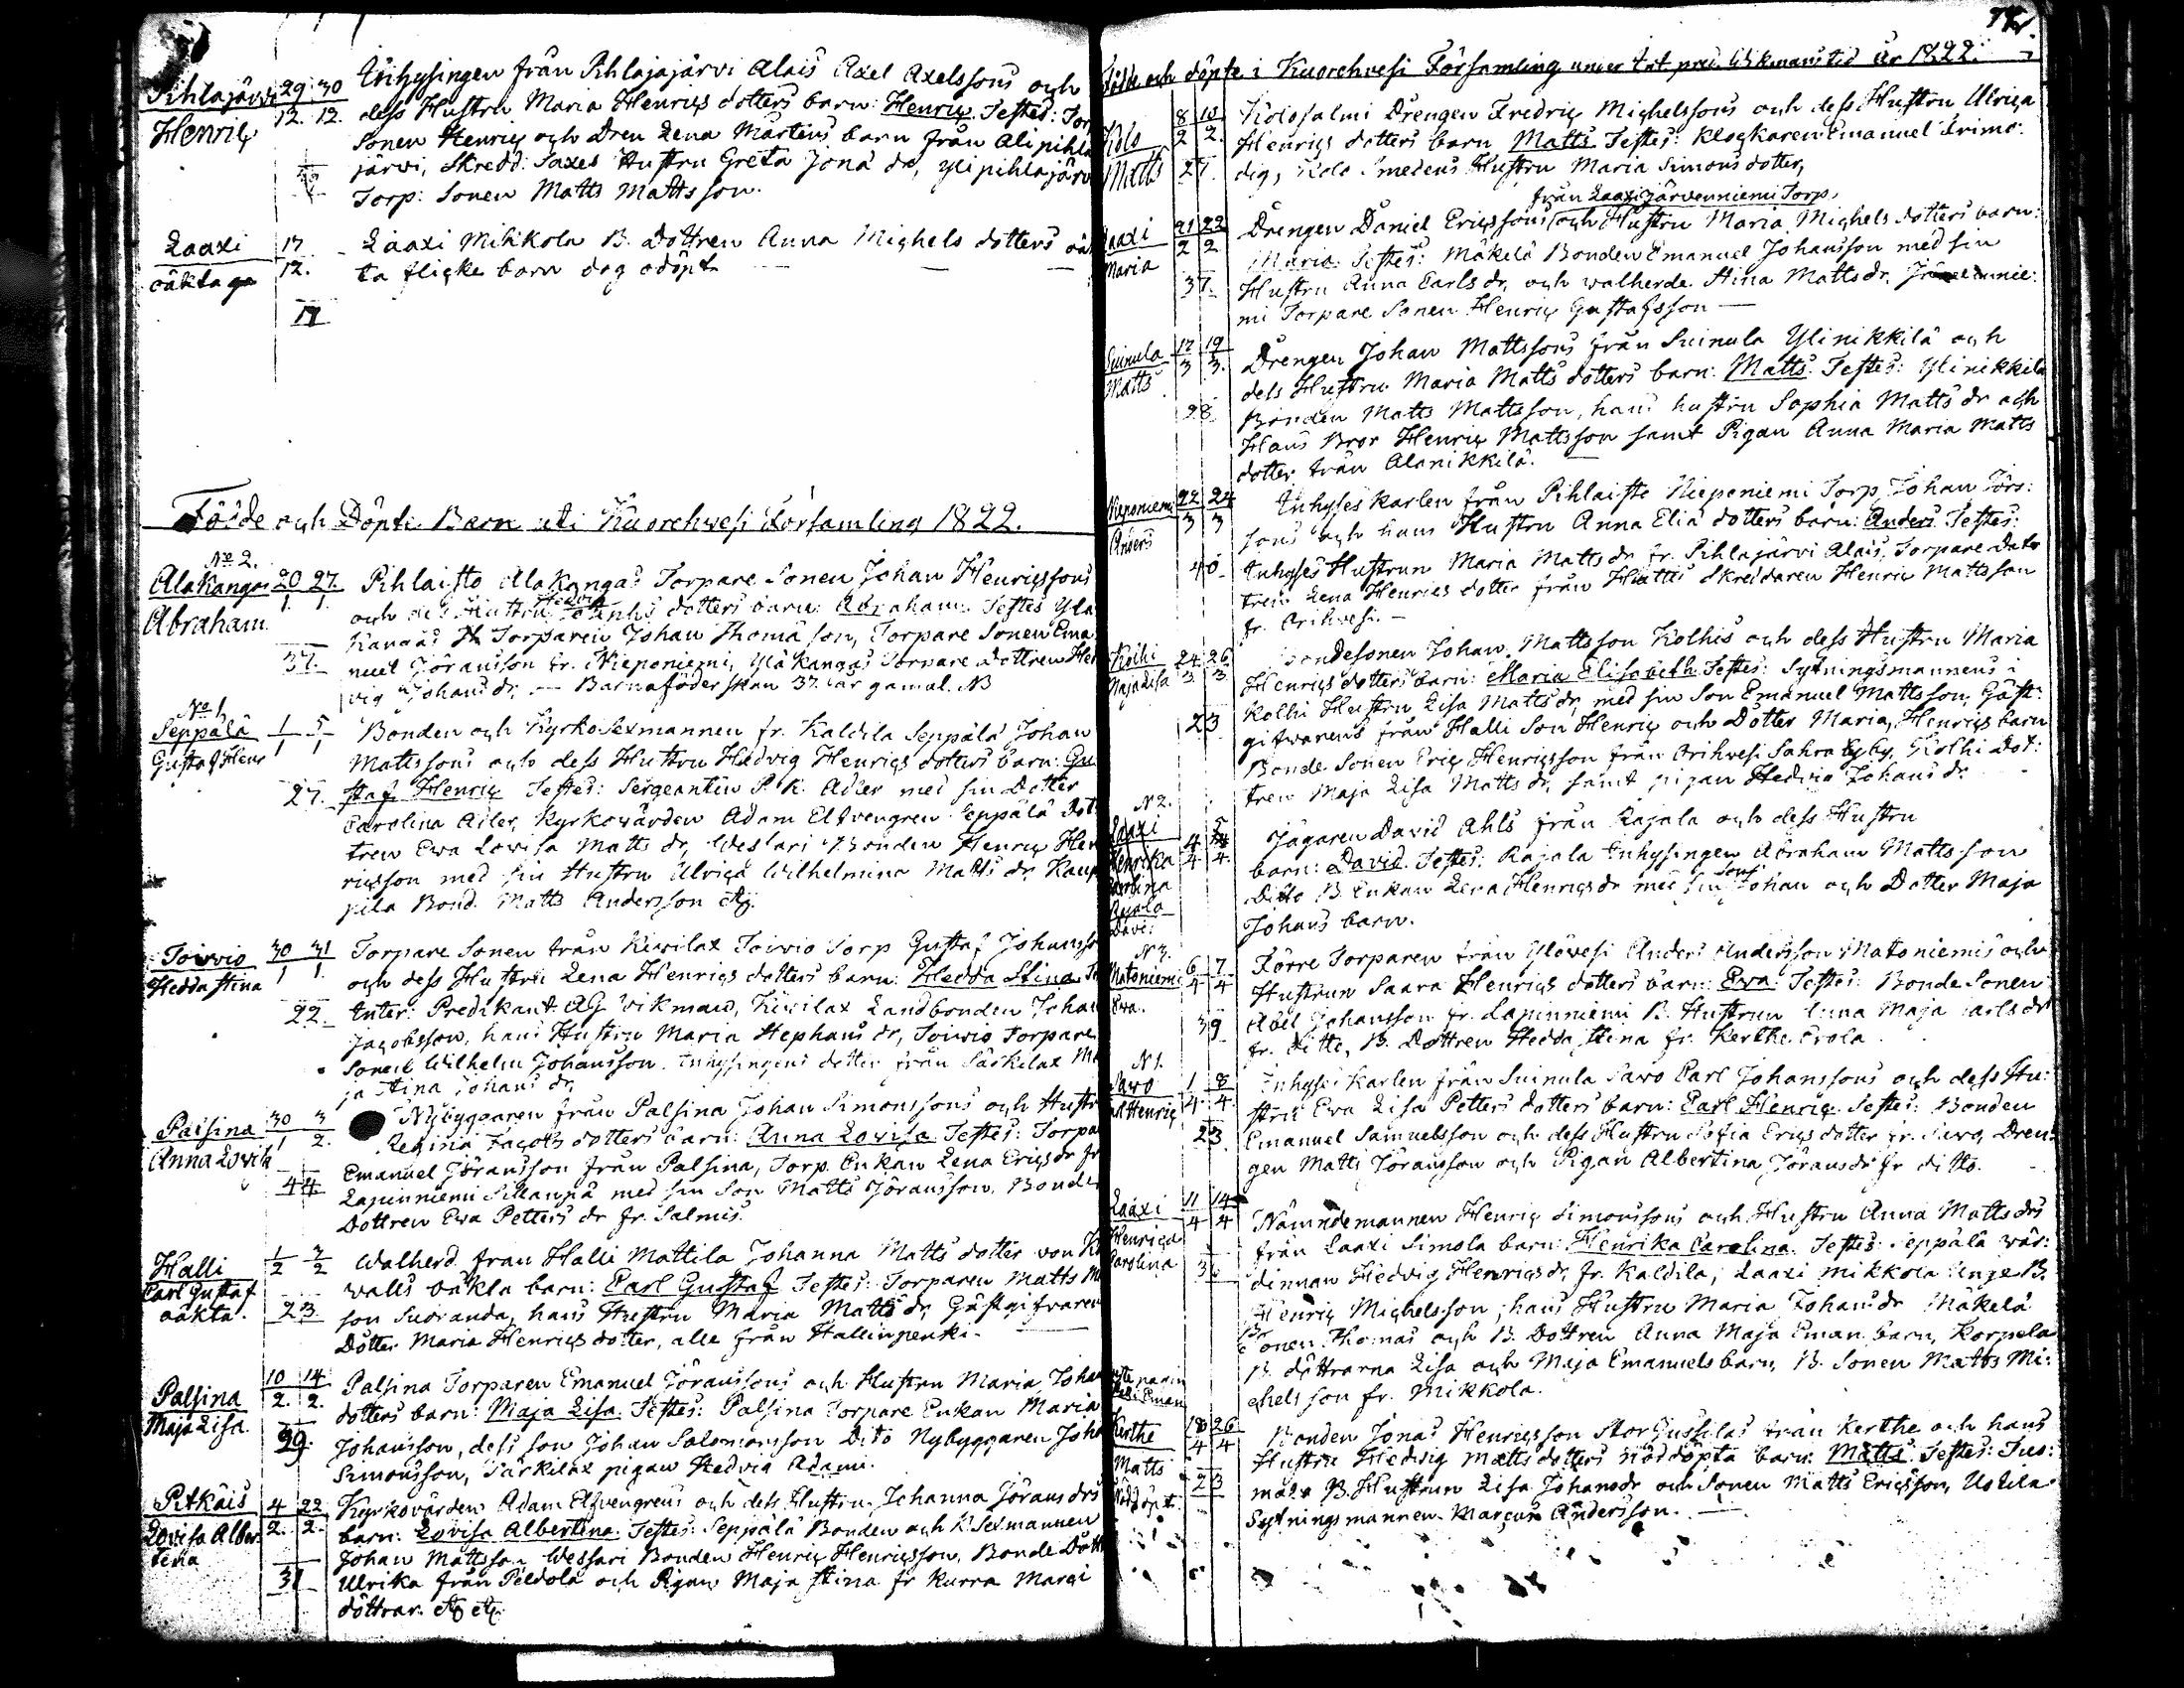 Pihlajärvi 29 30 Inhysingen från Pihlajajärvi Alais Axel Axelssons och
Henric 12. 12. dess Hustru Maria Henrics dotters barn: Henric. Testes: Torp
Sonen Henric och Dren Lena Mårtens barn från Ali pihla
järvi, Skredd: Saxes Hustru Greta Jona dr, yli pihlajärv
Torp: Sonen Matts Mattsson.
Laaxi 17 Laaxi Mikkola B. dottren Anna Michels dotters oäk
oäkta 12. ta flicke barn dog odöpt
17
Födde och Döpte Barn uti Kuorehwesi Församling 1822.
No 2.
Alakangas 20 27. Pihlaisto Alakangas Torpare Sonen Johan Henricssons
Abraham 1 1. och dess Hustru dotters barn: Abraham. Testes Yla
kangas Torparen Johan Thomä son, Torpare Sonen Ema
37. nuel Jöransson fr. Nieponiemi, Yläkangas Torpare dottren Hed
vig Johans dr. — Barnaföderskan 37. år gamal. NB
No 1.
Seppälä 1 5 Bonden och KyrkoSexmannen fr. Kaldila Seppälä Johan
Gustaf Henr 1 1 Mattssons och dess Hustru Hedvig Henrics dotters barn: Gu
27. staf Henric Testes: Sergeanten P. K. Adler med sin Dotter
Carolina Adler, Kyrkovärden Adam Elfvengren Seppälä dot
tren Ewa Lovisa Matts dr, Weslari Bonden Henric Hen
ricsson med sin Hustru Ulrica Wilhelmina Matts dr. Kaup
pila Bond. Matts Andersson
Toivio 30 31 Torpare Sonen från Kiwilax Toivio Torp Gustaf Johansso
Hedda Stina 1 1. och dess Hustru Lena Henrics dotters barn: Hedda Stina Te
22. Inter: Predikant AG Wikman, Kiwilax Landbonden Johan
Jacobsson, hans Hustru Maria Stephans dr, Toivio Torpare
Sonen Wilhelm Johansson. Inhysingens dotter från Särkilax Ma
ja Stina Johans dr,
Palsina 30 3 Nybyggaren från Palsina Johan Simonssons och Hustr
Anna Lovisa 1 2. Regina Jacobs dotters barn: Anna Lovisa. Testes: Torpa
Emanuel Jöransson från Palsina, Torp. Enkan Lena Erics dr fr
44 Lapinniemi med sin Son Matts Jöransson. Bonde
Dottren Ewa Petters dr fr. Salmis.
Halli 1 2 Walherd. från Halli Mattila Johanna Matts dotter von
Carl Gustaf 2 2 walls oäkta barn: Carl Gustaf Testes: Torparen Matts
oäkta. 23. son Suoranda, hans Hustru Maria Matts dr, Gästgifvaren
Dotter Maria Henrics dotter, alla från Hallinpenki.
Palsina 10 14 Palsina Torparen Emanuel Jöranssons och Hustru Maria Johan
Maja Lisa 2. 2. dotters barn: Maja Lisa. Testes: Palsina Torpare Enkan Maria
39. Johansson, dess son Johan Salomonsson Dito Nybyggaren Joha
Simonsson, Särkilax pigan Hedvig Adami.
Pitkäis 4 22 Kyrkovärden Adam Elfvengrens och dess Hustru Johanna Jörans drs
Lovisa Alber 2. 2. barn: Lovisa Albertina. Testes: Seppälä Bonden och K. Sexmannen
tina Johan Mattsson Wessari Bonden Henric Henricsson. Bonde Dott
31 Ulrika från Peldola och Pigan Maja Stina fr Kurra Marci
döttrar.
Födde och döpte i Kuorehvesi Församling under Int. pred. Wikmans tid år 1822.
8 10 Kolosalmi Drengen Fredric Michelssons och dess Hustru Ulrica
Kolo 2 2. Henrics dotters barn Matts Testes: Klockaren Emanuel Frimo:
Matts 27. dig, Kolo Smedens Hustru Maria Simons dotter,
från Laaxi Järvenniemi Torp,
Laaxi 21 22 Drengen Daniel Ericssons och Hustru Maria Michels dotters barn:
Maria 2 2 Maria. Testes: Mäkelä Bonden Emanuel Johansson med sin
37. Hustru Anna Carls dr, och walherde Stina Matts dr. Järvenie:
mi Torpare Sonen Henric Gustafsson
Suinula 17 19 Drengen Johan Mattssons från Suinula Ylinikkilä och
Matts 3 3. dess Hustru Maria Matts dotters barn: Matts. Testes: Ylinikkilä
28. Bonden Matts Mattsson, hans hustru Sophia Matts dr och
Hans Bror Henric Mattsson samt Pigan Anna Maria Matts
dotter från Alanikkilä.
Nieponiemi 22 24 Inhyses Karlen från Pihlaisto Nieponiemi Torp Johan Jörs:
Anders 3 3 sons och hans Hustru Anna Eliä dotters barn: Anders. Testes:
40. Inhyses Hustrun Maria Matts dr fr. Pihlajärvi Alais, Torpare Dot
tren Lena Henrics dotter från Skreddaren Henric Mattsson
fr. Orihvesi.
Kolhi 24 26 Bondesonen Johan Mattsson Kolhis och dess Hustru Maria
Maja Lisa 3 3 Henrics dotters barn: Maria Elisabeth. Testes: Sytningsmannens i
23 Kolhi Hustru Lisa Matts dr, med sin Son Emanuel Mattsson, Gäst:
gifvarens från Halli Son Henric och Dotter Maria, Henrics barn
Bonde Sonen Eric Henricsson från Orihvesi Sahra by, Kolhi Dot:
tren Maja Lisa Matts dr, samt pigan Hedvig Johans dr.
N 2.
Laaxi 4 5 Jägaren David Ahls från Rajala och dess Hustru
Henrika 4 4. barn: David. Testes: Rajala Inhysingen Abraham Mattsson
Carolina Ditto B. Enkan Lena Henrics dr med sin Son Johan och Dotter Maja
Rajala Johans barn.
Davi:
N 3.
Matoniemi 6 7 Förre Torparen från Ylövesi Anders Andersson Matoniemis och
Ewa. 4 4 Hustrun Saara Henrics dotters barn: Ewa. Testes: Bonde Sonen
39 Abel Johansson fr. Lapinniemi B. Hustrun Anna Maja Carls dr
fr. ditto, B. Dottren Hedda Stina fr. Kerthe Erola
N 1.
Sawo 1 8 Inhyses Karlen från Suinula Sawo Carl Johanssons och dess Hu:
Henric 4 4. stru Eva Lisa Petters dotters barn: Carl Henric. Testes: Bonden
23 Emanuel Samuelsson och dess Hustru Sofia Erics dotter fr. Sawo, Dren:
gen Matts Jöransson och Pigan Albertina Jörans dr fr ditto.
Laaxi 11 14 Nämndemannen Henric Simonssons och Hustru Anna Matts drs
Henrica 4 4 från Laaxi Simola barn: Henrika Carolina. Testes: Seppälä wär:
Carolina dinnan Hedvig Henrics dr, fr. Kaldila, Laaxi Mikkola Unge B.
Henric Michelsson, hans Hustru Maria Johans dr Mäkelä
Sonen Thomas och B. Dottren Anna Maja Eman. barn, Korpela
B. döttrarna Lisa och Maja Emanuels barn, B. Sonen Matts Mi:
chelsson fr. Mikkola.
Kerthe 18 26 Bonden Jonas Henricsson Stor Jussilas från Kerthe och hans
Matts 4 4 Hustru Hedvig Matts dotters nöddöpta barn: Matts. Testes: Juo:
Nöddöpt. 23 B. Hustrun Lisa Johans dr och Sonen Matts Ericsson, Uotila
Sytningsmannen Marcus Andersson.